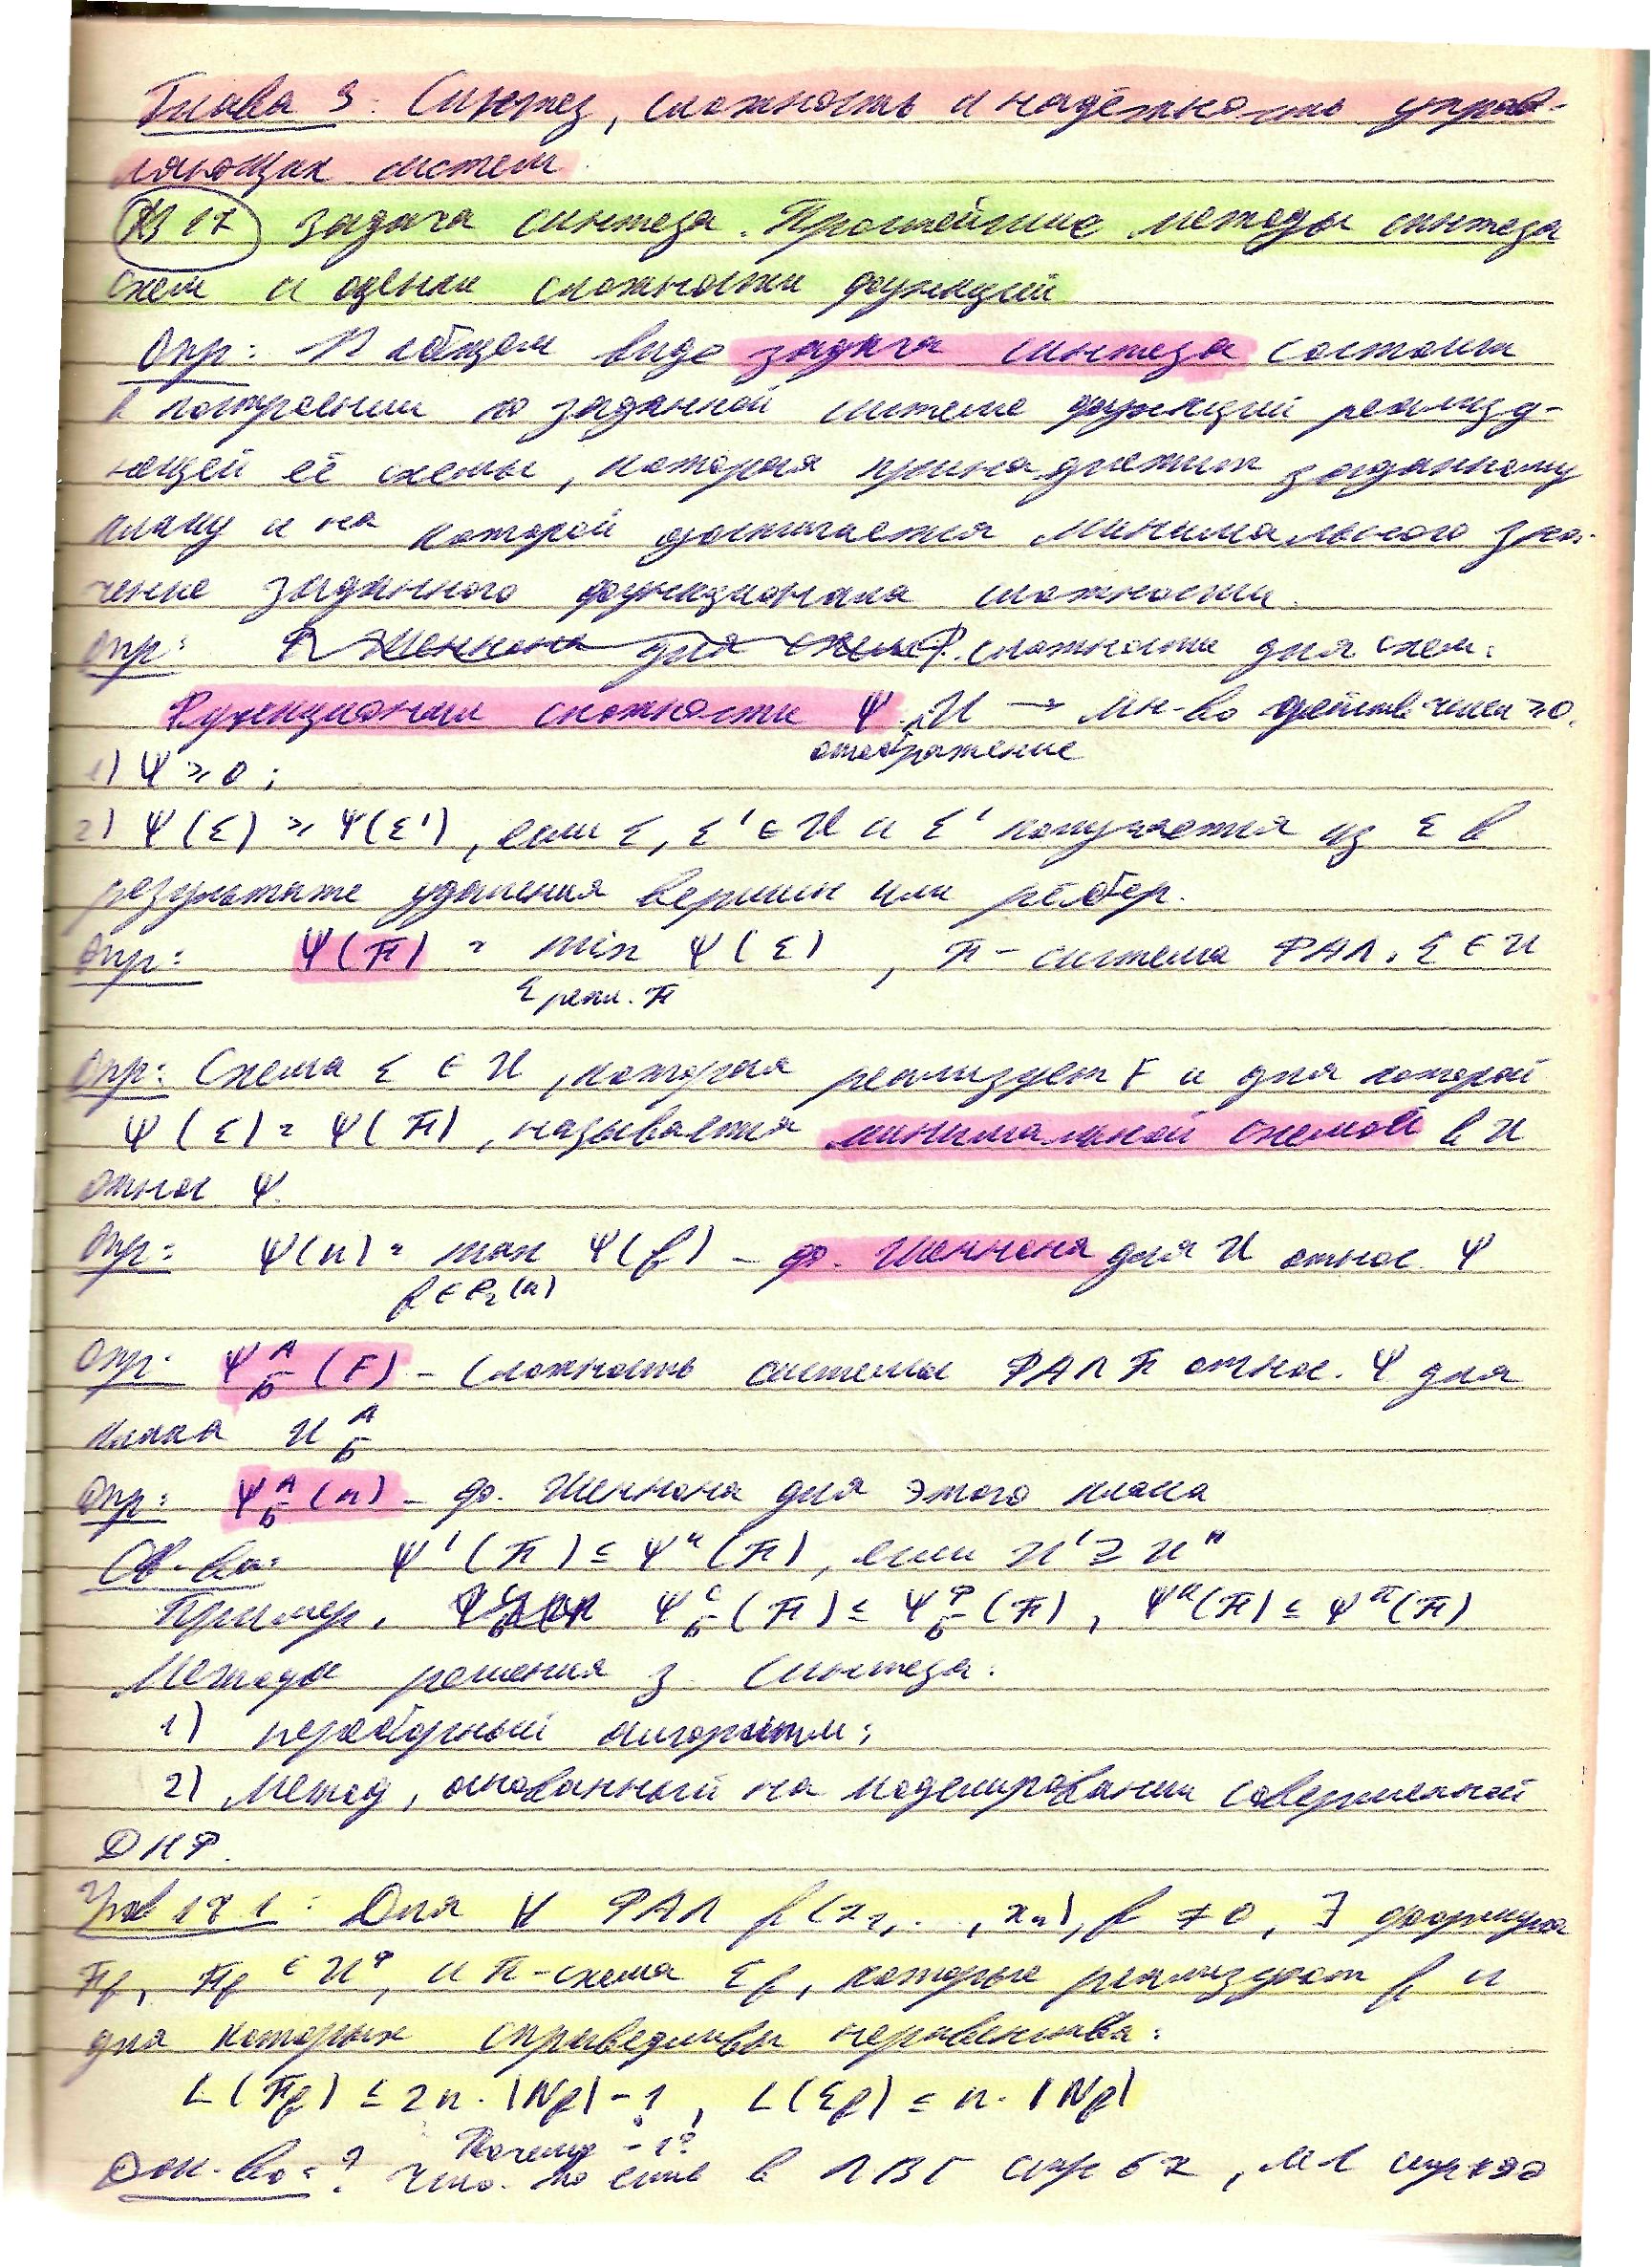 Глава 3: Синтез, сложность и надёжность управ-
ляющих систем
В 17 Задача синтеза. Простейшие методы синтеза
схем и оценки сложности функций
Опр: В общем виде задача синтеза состоит
в построении по заданной системе функций реализу-
ющей её схемы, которая принадлежит заданному
классу и на которой достигается минимального зна-
чение заданного функционала сложности.
Опр: сложности для схем:
Функционал сложности Ψ: U → мн-во действ чисел ≥ 0.
отображение
1) Ψ ≥ 0;
2) Ψ(Σ) ≥ Ψ(Σ'), если Σ, Σ' ∈ U и Σ' получается из Σ в
результате удаления вершин или рёбер.
Опр: Ψ(F) = min Ψ(Σ), F - система ФАЛ, Σ ∈ U
Σ реал. F
Опр: Схема Σ ∈ U, которая реализует F и для которой
Ψ(Σ) = Ψ(F), называется минимальной схемой в U
относ Ψ.
Опр: Ψ(n) = max Ψ(f) - ф. Шеннона для U относ. Ψ
f ∈ P₂(n)
Опр: Ψ^A_Б (F) - сложность системы ФАЛ F относ. Ψ для
класса U^A_Б
Опр: Ψ^A_Б (n) - ф. Шеннона для этого класса
Св-ва: Ψ'(F) ≤ Ψ"(F), если U' ⊇ U"
Пример. Ψ^C_Б (F) ≤ Ψ^Ф_Б (F), Ψ^К(F) ≤ Ψ^π(F)
Методы решения з. синтеза:
1) переборный алгоритм;
2) метод, основанный на моделировании совершенной
ДНФ.
Утв 17.1: Для ∀ ФАЛ f(x₁, ..., xₙ), f ≠ 0, ∃ формула
F_f, F_f ∈ U^Ф, и π-схема Σ_f, которые реализуют f и
для которых справедливы неравенства:
L(F_f) ≤ 2n · |N_f| - 1, L(Σ_f) ≤ n · |N_f|
Почему -1?
Док-во: ? Что-то есть в ЛВГ стр 67, МЛ стр